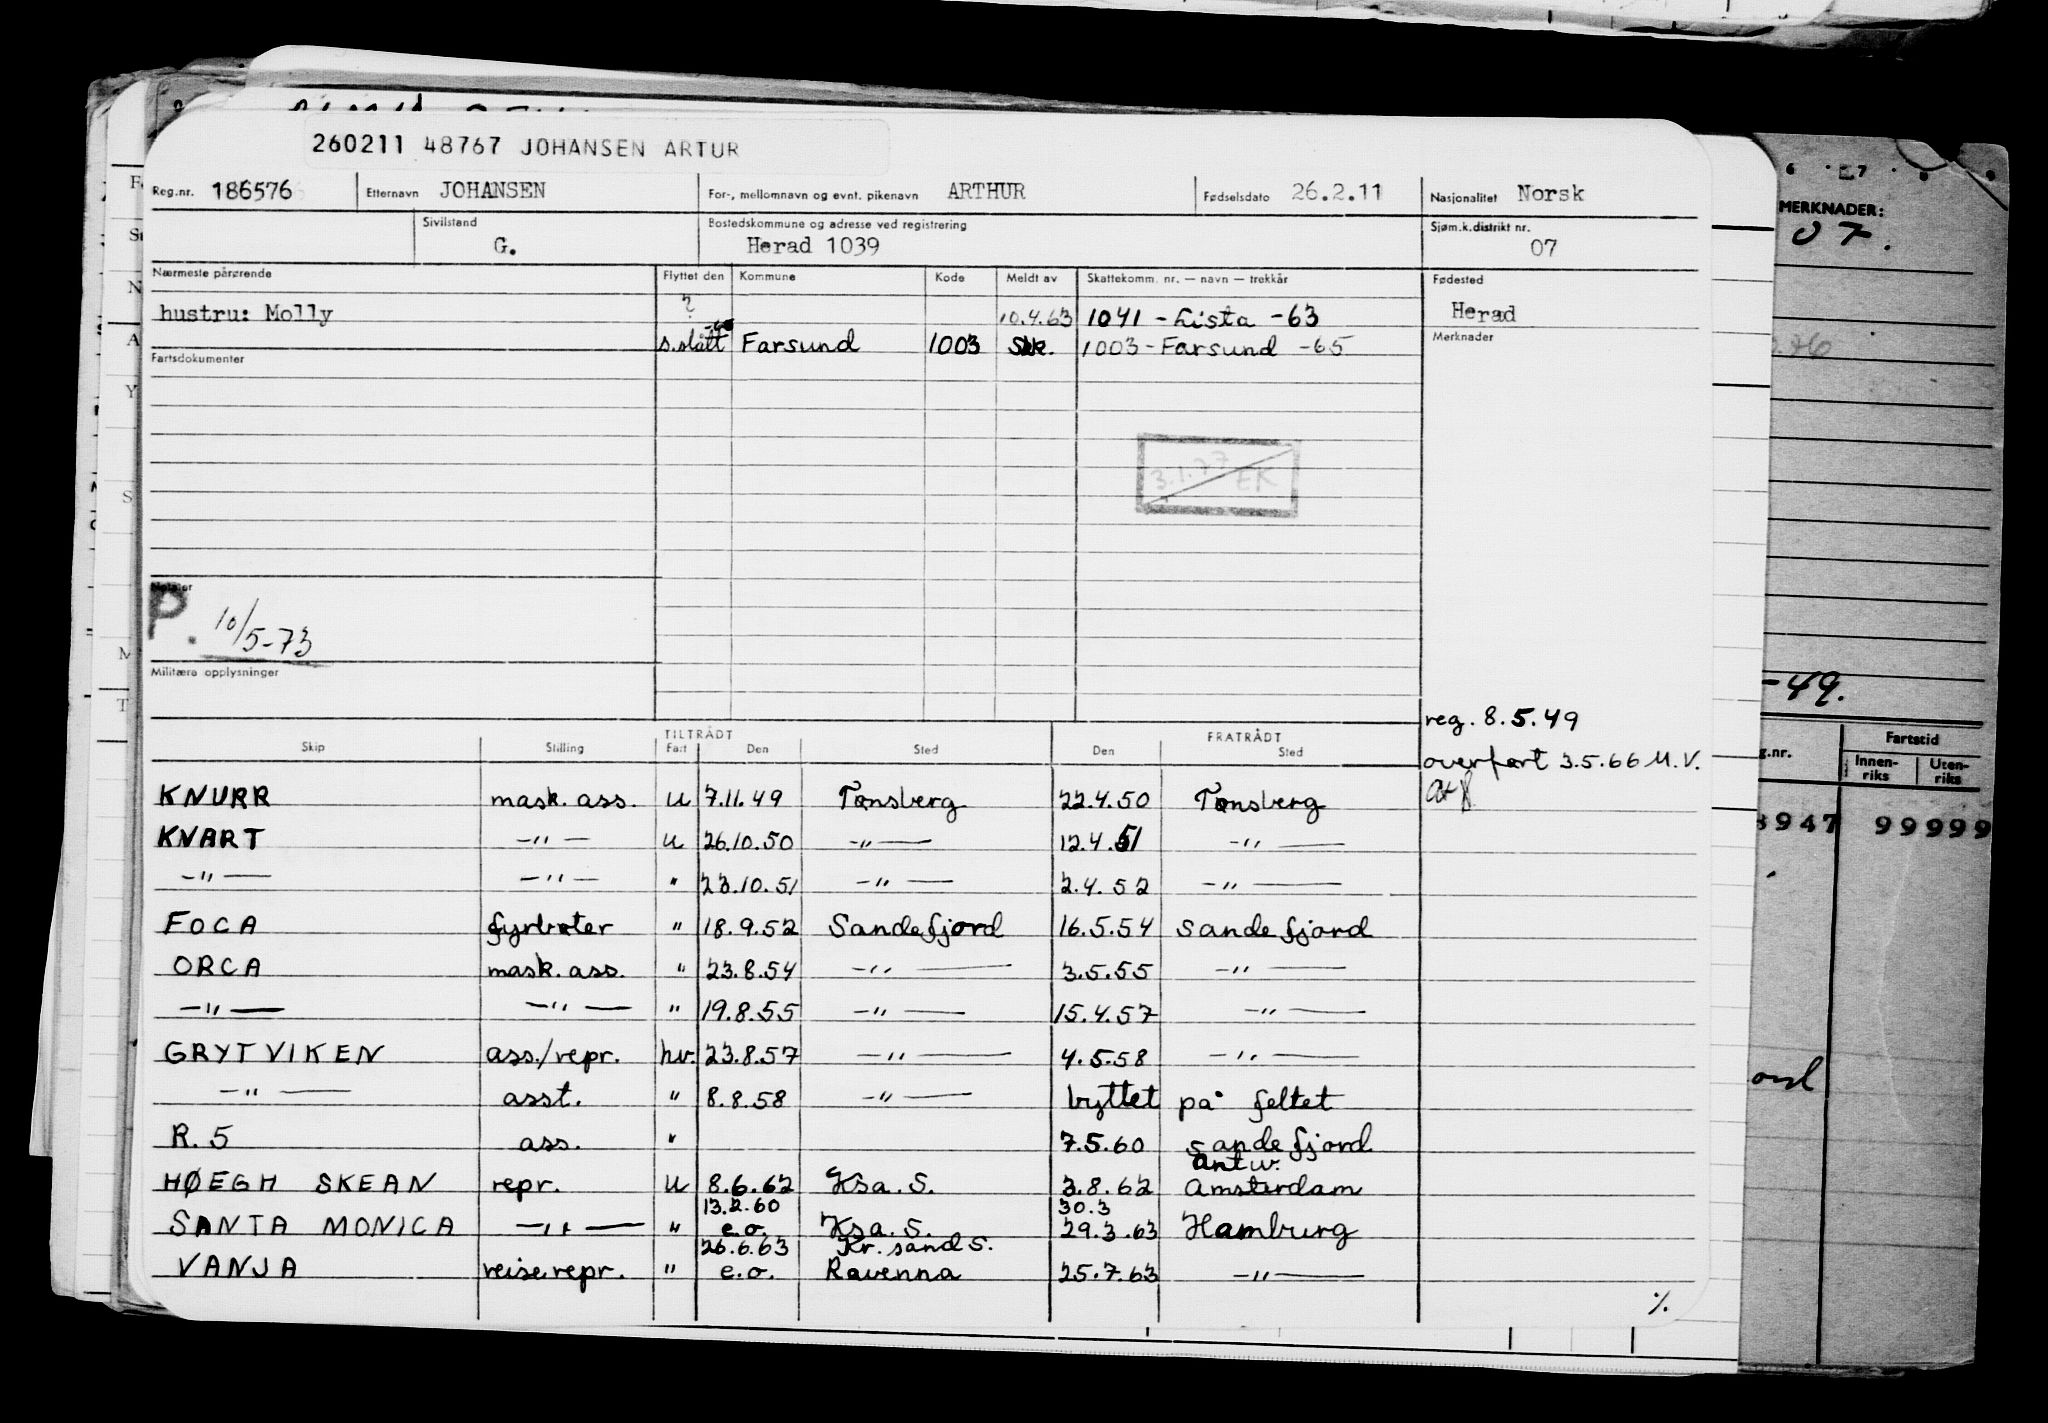 260211 48767 JOHANSEN ARTUR
Reg.nr. 186576 Etternavn JOHANSEN For-, mellomnavn og evnt. pikenavn ARTHUR Fødselsdato 26.2.11 Nasjonalitet Norsk
Sivilstand G. Bostedskommune og adresse ved registrering Herad 1039 Sjøm.k.distrikt nr. 07
Nærmeste pårørende Flyttet den Kommune Kode Meldt av Skattekomm. nr. — navn — trekkår Fødested
hustru: Molly ? 10.4.63 1041 - Lista - 63 Herad
s.slått Farsund 1003 Skk. 1003 - Farsund - 65 Merknader
Fartsdokumenter
3.1.77 EK
Notater
P. 10/5-73
Militære opplysninger
reg. 8.5.49
overført 3.5.66 M.V.
Skip Stilling TILTRÅDT Fart Den Sted FRATRÅDT Den Sted
KNURR mask. ass. U 7.11.49 Tønsberg 22.4.50 Tønsberg
KVART -"- U 26.10.50 -"- 12.4.51 -"-
-"- -"- " 23.10.51 -"- 2.4.52 -"-
FOCA fyrbøter " 18.9.52 Sandefjord 16.5.54 Sandefjord
ORCA mask. ass. " 23.8.54 -"- 3.5.55 -"-
-"- -"- " 19.8.55 -"- 15.4.57 -"-
GRYTVIKEN ass./repr. hv. 23.8.57 -"- 4.5.58 -"-
-"- asst. " 8.8.58 -"- byttet på feltet
R. 5 ass. " 7.5.60 Sandefjord
Antw.
HØEGH SKEAN repr. U 8.6.62 Ksa. S. 3.8.62 Amsterdam
13.2.60 30.3
SANTA MONICA -"- " e.o. Ksa. S. 29.3.63 Hamburg
26.6.63 Kr. sand S.
VANJA reiserepr. " e.o. Ravenna 25.7.63 -"-
%
MERKNADER:
07.
-49.
g.nr. Fartstid
Innen-riks Uten-riks
947 99999